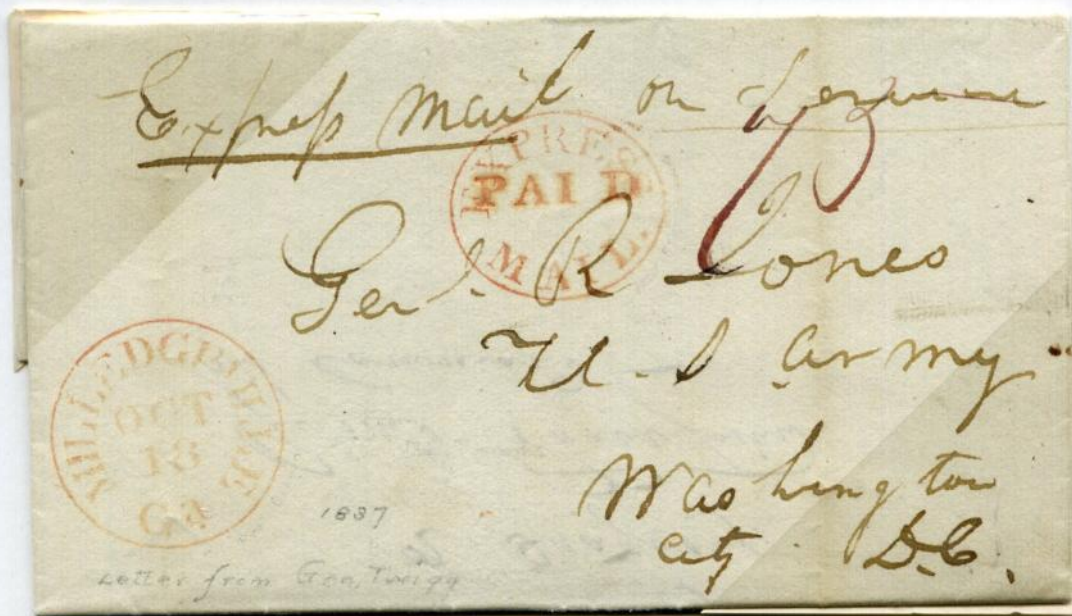 Express Mail on Service
EXPRESS
PAID
MAIL.
Genl. R Jones
U. S Army
Washington
City D.C.
MILLEDGEVILLE
OCT
18
Ga
1837
Letter from Gen. Twiggs